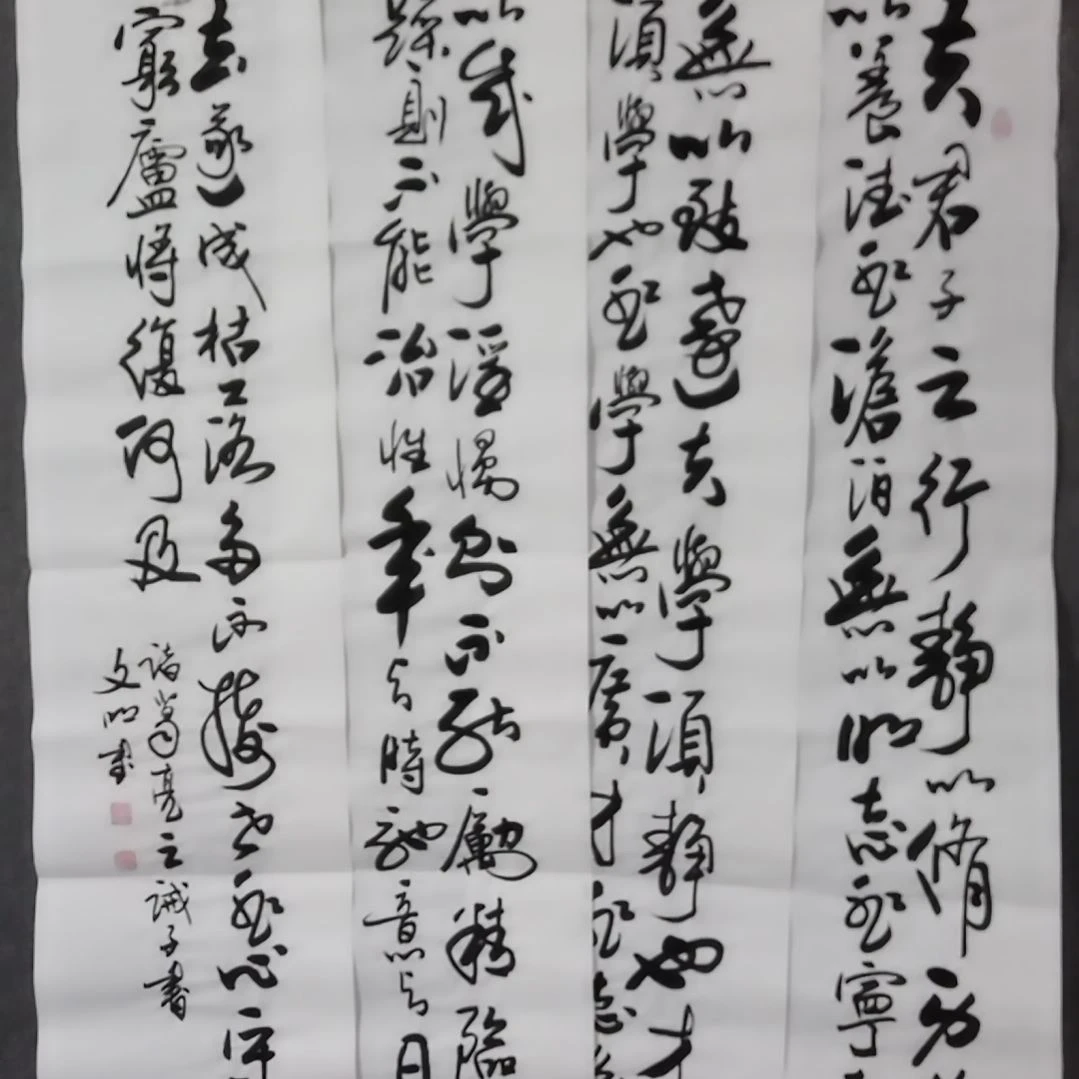 夫君子之行靜以脩身
以養德非澹泊無以明志非寧
無以致遠夫學須靜也才
須學也非學無以廣才非志
以成學淫慢則不能勵精險
躁則不能治性年與時馳意與日
去遂成枯落多不接世悲守
窮廬將復何及
諸葛亮之誡子書
文明書